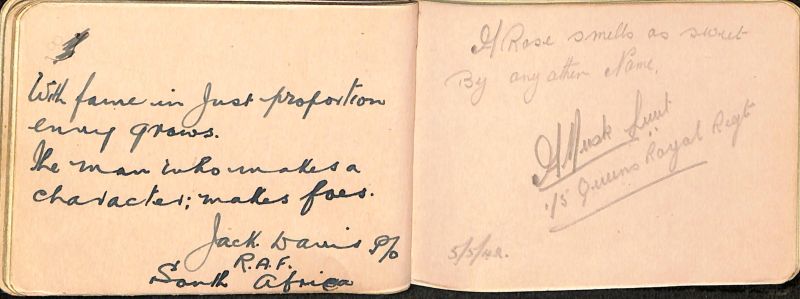 With fame in Just proportion
envy grows.
The man who makes a
character; makes foes.
Jack Davis P/o
R.A.F.
South Africa
A Rose smells as sweet
By any other Name.
A Musk
1/5 Queens Royal Regt
5/5/42.